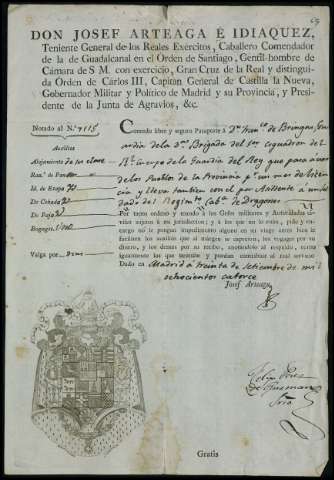 DON JOSEF ARTEAGA É IDIAQUEZ,
Teniente General de los Reales Exércitos, Caballero Comendador
de la de Guadalcanal en el Orden de Santiago, Gentil-hombre de
Cámara de S M. con exercicio, Gran Cruz de la Real y distingui-
da Orden de Carlos III, Capitan General de Castilla la Nueva,
Gobernador Militar y Político de Madrid y su Provincia, y Presi-
dente de la Junta de Agravios, &c.
Notado al N.º 7115
Concedo libre y seguro Pasaporte á Dn. Franco. de Bringas, Guar-
dia de la 2ª Brigada del 1er esquadron de
Rl. Cuerpo de la Guardia del Rey que pasa á
los Pueblos de la Provincia pr. un mes de licen-
cia y lleva tambien con el por Asistente á un Sol-
dado del Regimto. Cabª. de Dragones
Auxîlios
Alojamiento
Racs. de Pan
Id. de Etapa
De Cebada
De Paja
Bagages
Valga por
Por tanto ordeno y mando á los Gefes militares y Autoridades ci-
viles sujetas á mi jurisdiccion; y á los que no lo están, pido y en-
cargo no le pongan impedimento alguno en su viage antes bien le
faciliten los auxîlios que al márgen se expresan, los bagages por su
dinero, y los demas por su recibo, asentándolo al respaldo, como
igualmente los que tomáren y puedan contribuir al real servicio
Dado en Madrid á treinta de Setiembre de mil
ochocientos catorce
Josef Arteaga
Perez
de Guzman
Srio
Gratis